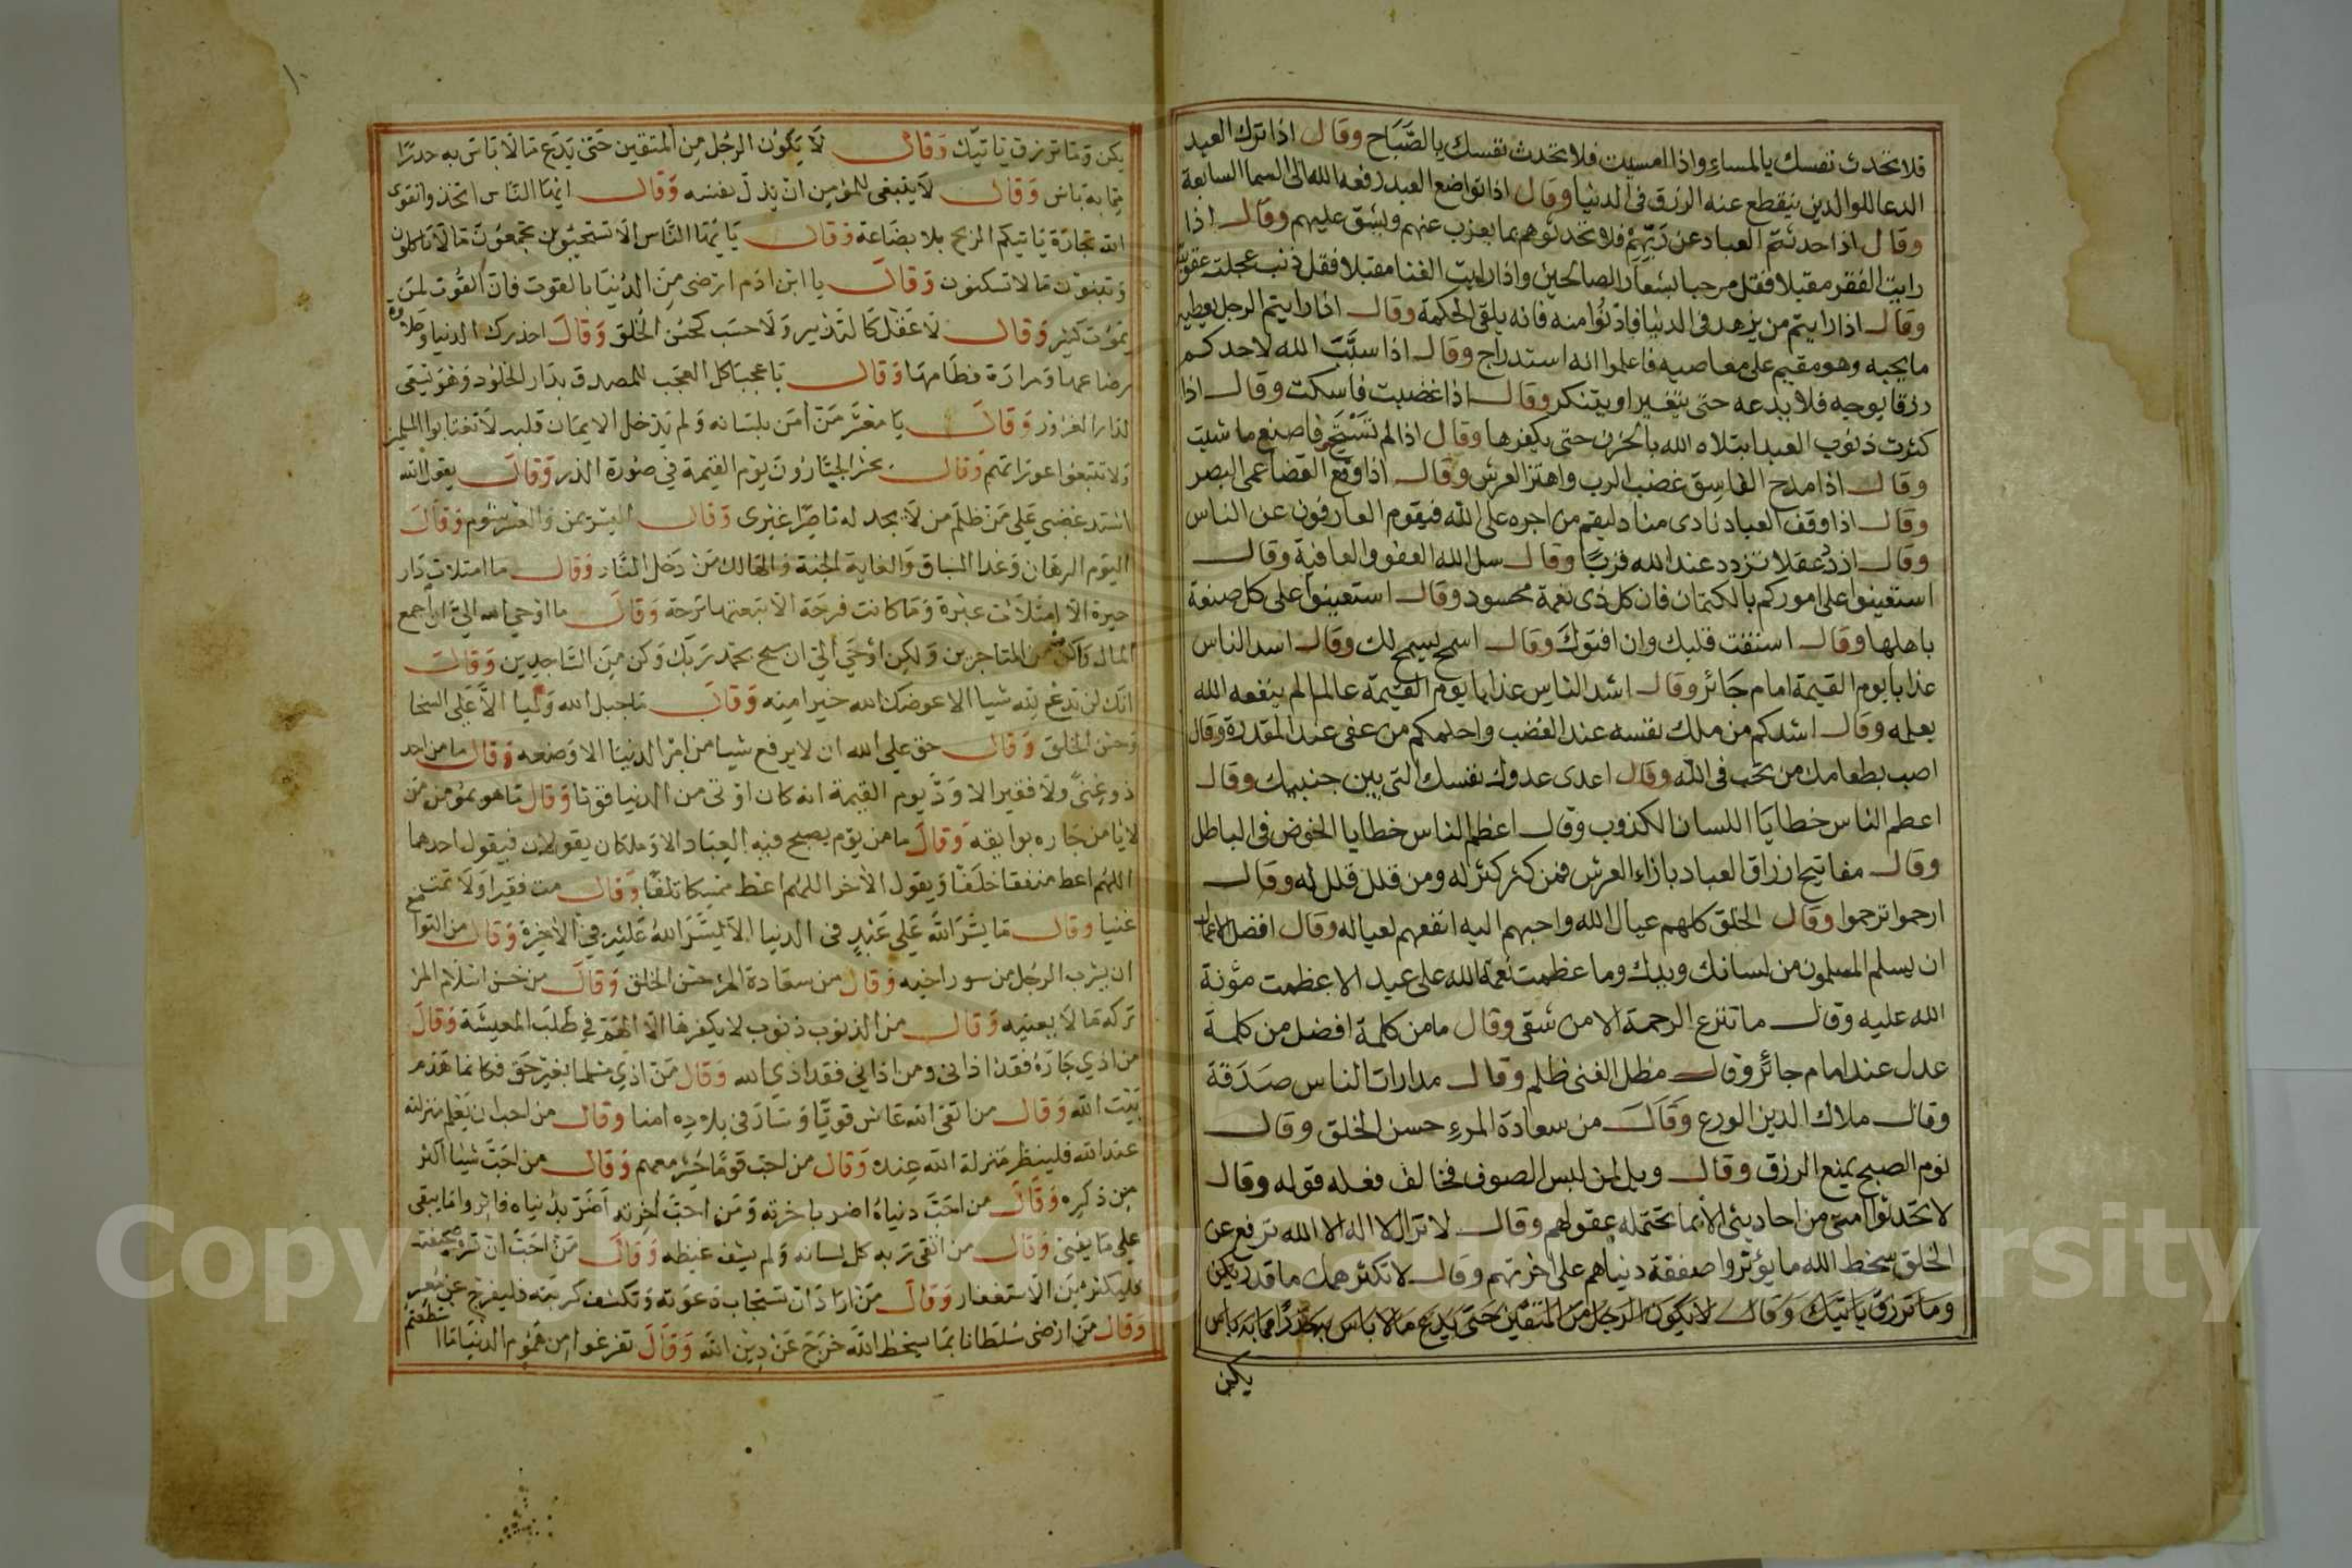 فلا تحدث نفسك بالمساء واذا امسيت فلا تحدث نفسك بالصَّبَاح وقال اذا ترك العبد
الدعا للوالدين ينقطع عنه الرزق فى الدنيا وقال اذا تواضع العبد رفعه الله الى السما السابعة
وقال اذا حدثتم العباد عن رَبِّهِمْ فلا تحدثوهم بما يعزب عنهم ويشق عليهم وقال اذا
رايت الفقر مقبلا فقل مرحبا بشعار الصالحين واذا رايت الغنا مقبلا فقل ذنب عجلت عقوبته
وقال اذا رايتم من يزهد فى الدنيا فادنُوا منه فانه يلقى الحكمة وقال اذا رايتم الرجل يعطيه
ما يحبه وهو مقيم على معاصيه فاعلموا انه استدراج وقال اذا سبَّبَ الله لاحدكم
رزقا بوجيه فلا يدعه حتى يتغير او يتنكر وقال اذا غضبت فاسكت وقال اذا
كثرت ذنوب العبد ابتلاه الله بالحزن حتى يكفرها وقال اذا لم تَسْتَحِ فاصنع ما شيت
وقال اذا مدح الفاسِق غضب الرب واهتز العرش وقال اذا وقع القضا عمى البصر
وقال اذا وقف العباد نادى مناد ليقم من اجره على الله فيقوم العارفون عن الناس
وقال ازدد عقلا تزدد عند الله قربًا وقال سل الله العفو والعافية وقال
استعينوا على اموركم بالكتمان فان كل ذى نعمة محسود وقال استعينوا على كل صنعة
باهلها وقال استفت قلبك وان افتوك وقال اسمح يسمح لك وقال اسد الناس
عذابا يوم القيمة امام جَائر وقال اشد الناس عذابا يوم القيمة عالما لم ينفعه الله
بعلمه وقال اشدكم من ملك نفسه عند الغضب واحلمكم من عفى عند المقدرة وقال
اصب بطعامك من تحب فى الله وقال اعدى عدوك نفسك التى بين جنبيك وقال
اعظم الناس خطايَا اللسان الكذوب وقال اعظم الناس خطايا الخوض فى الباطل
وقال مفاتيح ارزاق العباد بازاء العرش فمن كثر كثر له ومن قلل قلل له وقال
ارحموا ترحموا وقال الخلق كلهم عيال الله واحبهم اليه انفعهم لعياله وقال افضل الاعمال
ان يسلم المسلمون من لسانك ويدك وما عظمت نعمة الله على عبد الا عظمت مؤنة
الله عليه وقال ما تنزع الرحمة الا من شقى وقال ما من كلمة افضل من كلمة
عدل عند امام جائر وقال مطل الغنى ظلم وقال مدارات الناس صَدَقة
وقال ملاك الدين الورع وَقَالَ من سعادة المرءِ حسن الخلق وقال
نوم الصبح يمنع الرزق وقال ويل لمن لبس الصوف فخالف فعله قوله وقال
لا تحدثوا امتى من احاديثى الا بما تحتمله عقولهم وقال لا تزال لا اله الا الله ترفع عن
الخلق سخط الله ما يؤثروا صفقة دنياهم على اخرتهم وقال لا تكثر همك ما قدر يكن
وَمَا ترزق يَاتيكَ وَقال لا يكون الرجل من المتقين حتى يدع ما لا باس به حذرًا مما به باس
يكن
يكن وَمَا ترزق يَاتيك وَقال لَا يَكوُن الرجُل مِن المتقين حَتى يَدَع مَا لَا بَاس به حذرًا
مِمّا به باس وَقال لَا ينبغى للمؤمن ان يذل نفسه وَقال ايها النَّاس اتخذوا تقوى
الله تجارَة يَاتيكم الربح بلا بضَاعة وَقال يَا يهَا النَّاس الَا تستحيُون تجمعُون مَا لا تَاكلون
وَتبنوُن مَا لا تسكنون وَقال يا ابن ادَم ارضى مِن الدُنيَا بالقوت فان القُوت لمن
يَموُت كثير وَقال لَا عَقل كَالتدبير وَلَا حسَب كحُسْن الخُلق وَقالَ احذرك الدنيا وَحلَاوة
رضاعها وَمرارَة فطَامهَا وَقال يَا عجبَا كل العجَب للمصدق بدَار الخلود وَهو يَسعَى
لدار الغرُور وَقالَ يَا معشر مَن امَن بلسَانه وَلم يَدْخل الايمَان قلبه لَا تغتابوا المسلمين
وَلا تتبعوا عوراتهم وَقال يحشر الجبَّارُون يوَم القيمة في صُورة الذر وَقالَ يقول الله
اشتد غضبى عَلى مَن ظلَم من لَا يجد له نَاصِرًا غيرى وَقال اليسر يمن وَالعسر شوم وَقالَ
اليَوم الرهَان وَغدا السَباق وَالغاية الجنة وَالهَالك مَن دَخل النَّار وَقال ما امتلات دَار
حيرة الا امتلَأت عبْرة وَمَا كانت فرحَة الا تبعتهَا ترحَة وَقالَ ما اوحى الله الىّ ان اجمع
المال وَاكن من التاجرين وَلكن اوْحَى الىّ ان سبح بحمد رَبك وَكن مِن السَّاجدين وَقالَ
انك لن تَدع لله شيا الا عوضك الله خيرا منه وَقالَ مَا جبل الله وَليا الَّا عَلى السخا
وَحسْن الخلق وَقال حق على الله ان لا يرفع شيا من امْر الدنيَا الا وَضعه وَقال ما من احد
ذو غِنًى وَلَا فقير الا وَدَّ يوم القيمة انه كان اوْتى من الدنيا قوتا وَقال مَا هو بمؤمن مَن
لا يَامن جَاره بوايقه وَقالَ مَا من يَوم يصبح فيه العبَاد الا وَملكان يقولان فيقول احدهما
اللهُم اعط منفقا خلَفا وَيقول الأخر اللهُم اعط ممسكا تلفًا وَقال مت فقيرا وَلَا تمت
غنيا وقال مَا يَسَّرَ الله عَلى عَبْدٍ فى الدنيا الا يَسَّرَ الله عَليْه فى الأخِرة وَقالَ من التواضع
ان يشرب الرجُل من سور اخيه وَقال من سعَادة المرء حسْن الخلق وَقالَ من حُسن اسْلَام المرْ
تركه مَا لَا يعنيه وَقال من الذنوُب ذنوُب لا يكفرهَا الّا الهَم فِى طلَب المعيشَة وَقالَ
من اذى جَارَهُ فقد اذانى ومن اذانى فقد اذى الله وَقال مَن اذى مسْلما بغير حَق فكانما هَدم
بَيت الله وَقال من اتقى الله عَاش قويًّا وَسَارَ فى بلاده امنا وقال من احب ان يَعْلم منزلته
عند الله فلينظر منزلة الله عِنده وَقال من احبّ قومًا حُشر معهم وَقالَ من احَبّ شيا اكثر
مِن ذكره وَقالَ من احَبّ دنياهُ اضر باخرته وَمَن احَبّ اخرته اضَر بدُنياه فاثروا مَا يبقى
على مَا يفنى وَقال من اتقى رَبه كل لسانه وَلم يشف غيظه وَقالَ مَن احَبّ ان تسره صحيفته
فليكثر مِن الاستغفار وَقالَ مَن ارَادَ ان تستجاب دَعوَته وَتكشف كربَته فليفرج عَن مُعسر
وَقال مَن ارْضى سُلطَانا بمَا يسخط الله خرَج عَن دِين الله وَقالَ تفرغوا من هَمُوم الدنيَا مَا استطَعتُم
Copyright © King Saud University